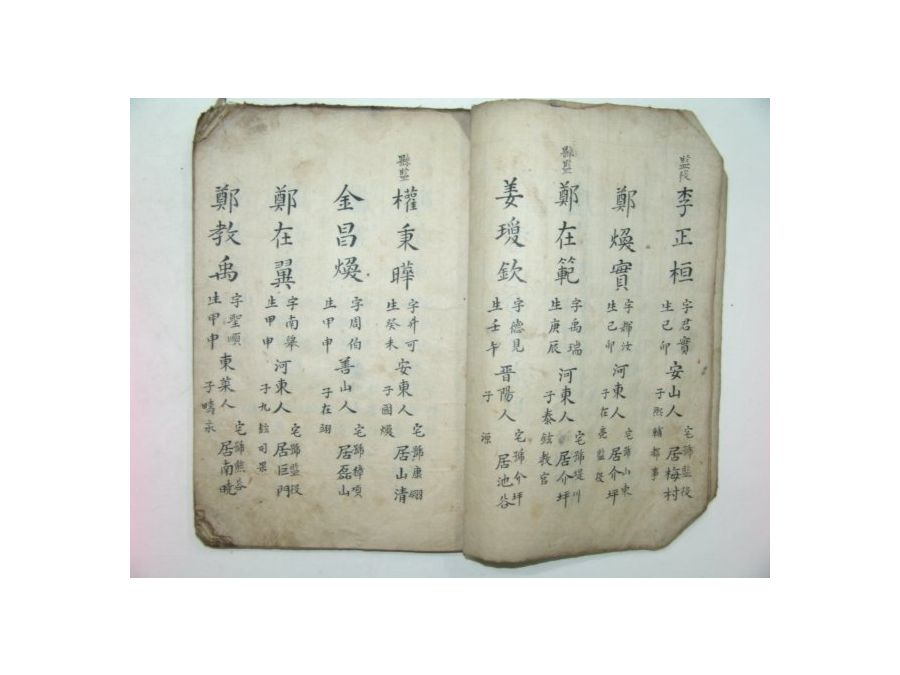 監役 李正桓 字君實 生己卯 安山人 宅號監役 居梅村 子熙輔都事
鄭煥實 字輝汝 生己卯 河東人 宅號山東 居介坪 子在亮監役
縣監 鄭在範 字禹瑞 生庚辰 河東人 宅號堤川 居介坪 子泰鉉教官
姜璦欽 字德見 生壬午 晋陽人 宅號介坪 居池谷 子源
縣監 權秉曄 字升可 生癸未 安東人 宅號康翊 居山清 子國煥
金昌煥 字周伯 生甲申 善山人 宅號樟項 居磊山 子在翊
鄭在翼 字南舉 生甲申 河東人 宅號監役 居巨門 子九鉉司果
鄭教禹 字聖順 生甲申 東萊人 宅號熊谷 居南曉 子疇永